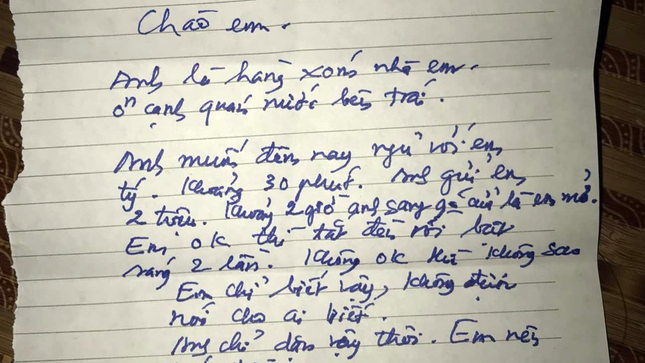 Chào em.
Anh là hàng xóm nhà em.
ở cạnh quán nước bên trái.
Anh muốn đêm nay ngủ với em
tý. Khoảng 30 phút. Anh gửi em
2 triệu. Khoảng 2 giờ anh sang gõ cửa là em mở.
Em ok thì tắt đèn rồi bật
sáng 2 lần. Không ok thì không sao
Em chỉ biết vậy, không được
nói cho ai biết.
Anh chỉ dám vậy thôi. Em nên